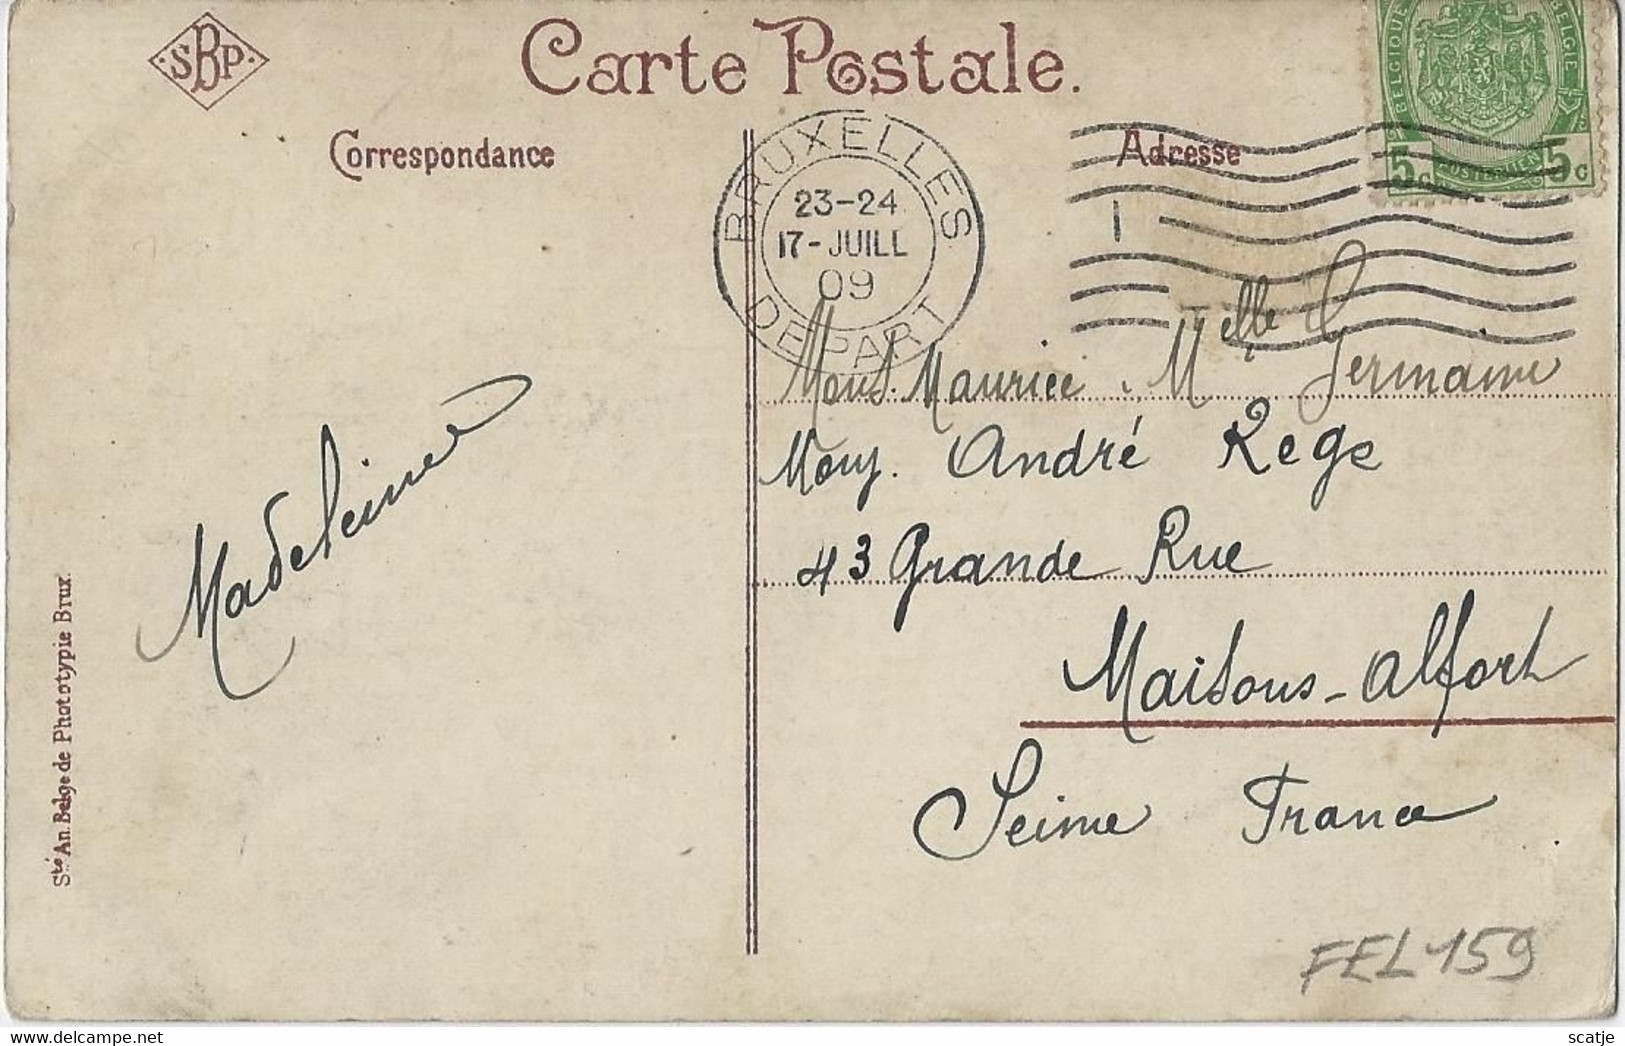 SBP
Carte Postale.
Correspondance
Adresse
BELGIQUE BELGIE
5c 5c
BRUXELLES
23-24
17-JUILL
09
DEPART
1
Mons. Maurice, Melle Germaine
Mons. André Rege
43 Grande Rue
Maisons-Alfort
Seine France
Madeleine
Sté An. Belge de Phototypie Brux.
FEL 159
scatje